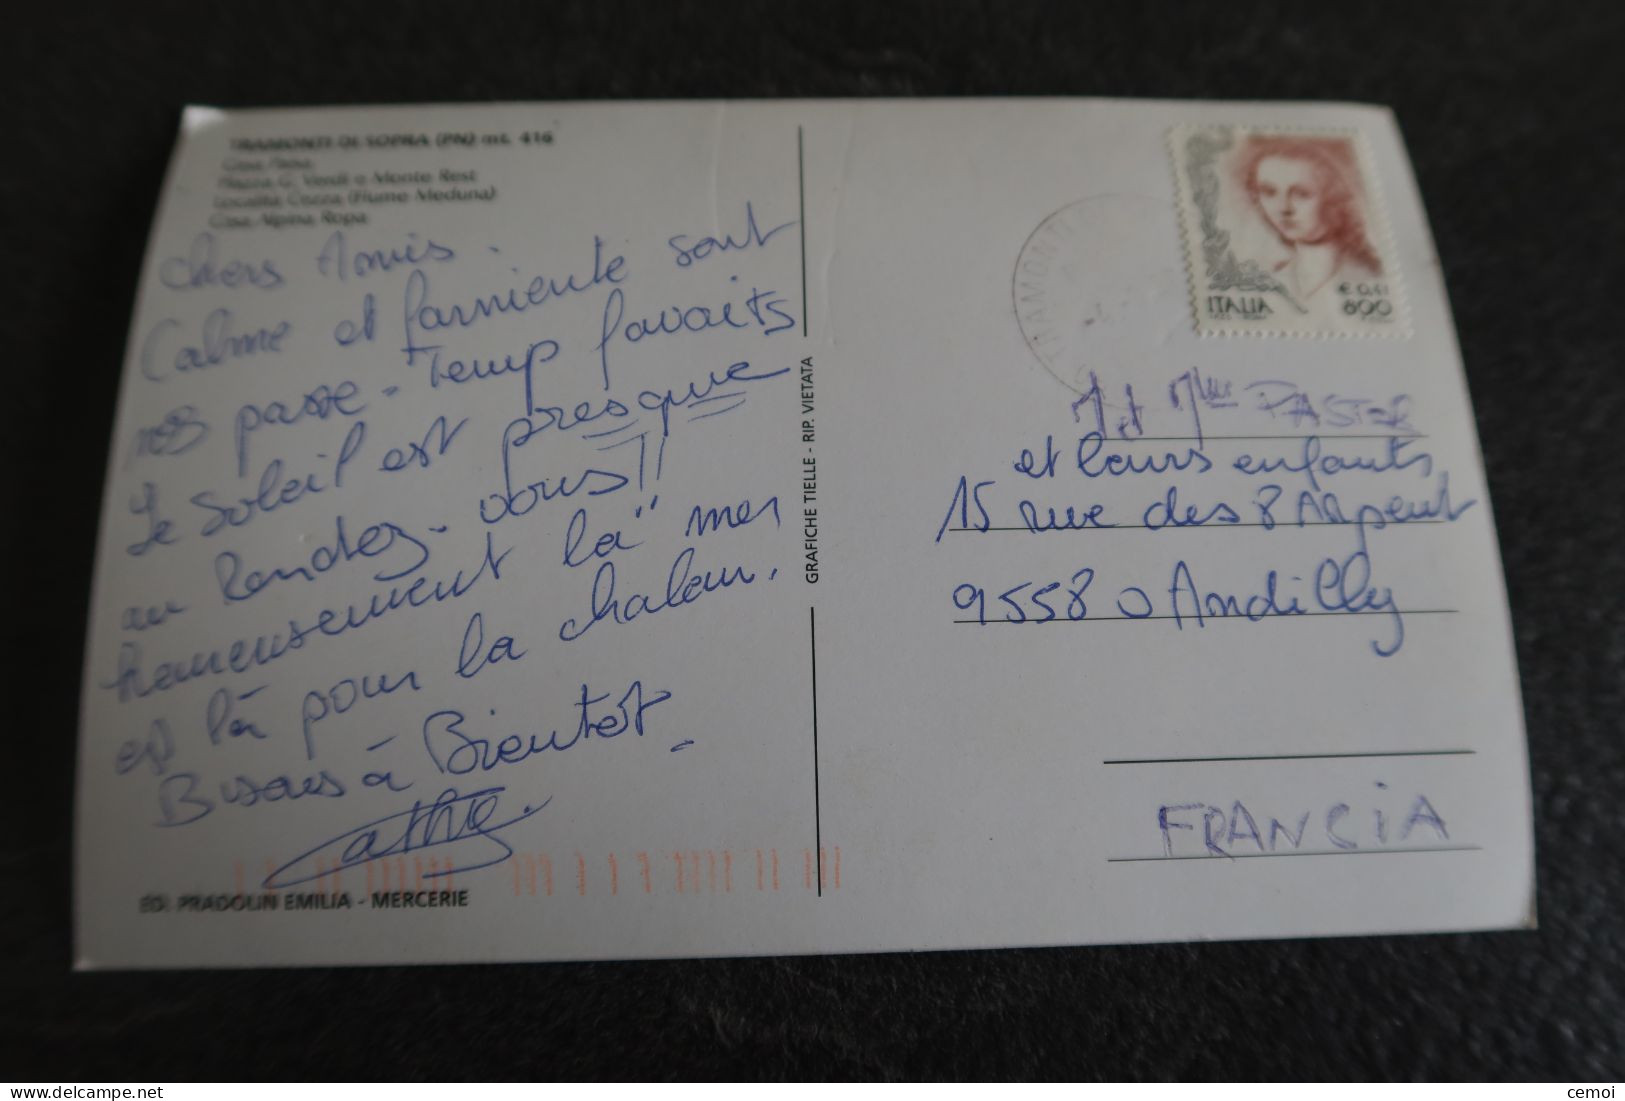 TRAMONTI DI SOPRA (PN) mt. 416
Casa Pausa
Piazza G. Verdi e Monte Rest
Località Cozza (Fiume Meduna)
Casa Alpina Ropa
Chers Amis.
Calme et farniente sont
nos passe-Temp favorits
Le Soleil est presque
au Rendez-vous!!
heureusement "la" mer
est là pour la chaleur.
Bisous à Bientot.
Cathy.
ED. PRADOLIN EMILIA - MERCERIE
GRAFICHE TIELLE - RIP. VIETATA
TRAMONTI
ITALIA
€ 0,41
800
M et Mme PASTOR
et leurs enfants
15 rue des 8 Arpent
95580 Andilly
FRANCIA
delcampe.net
cemoi